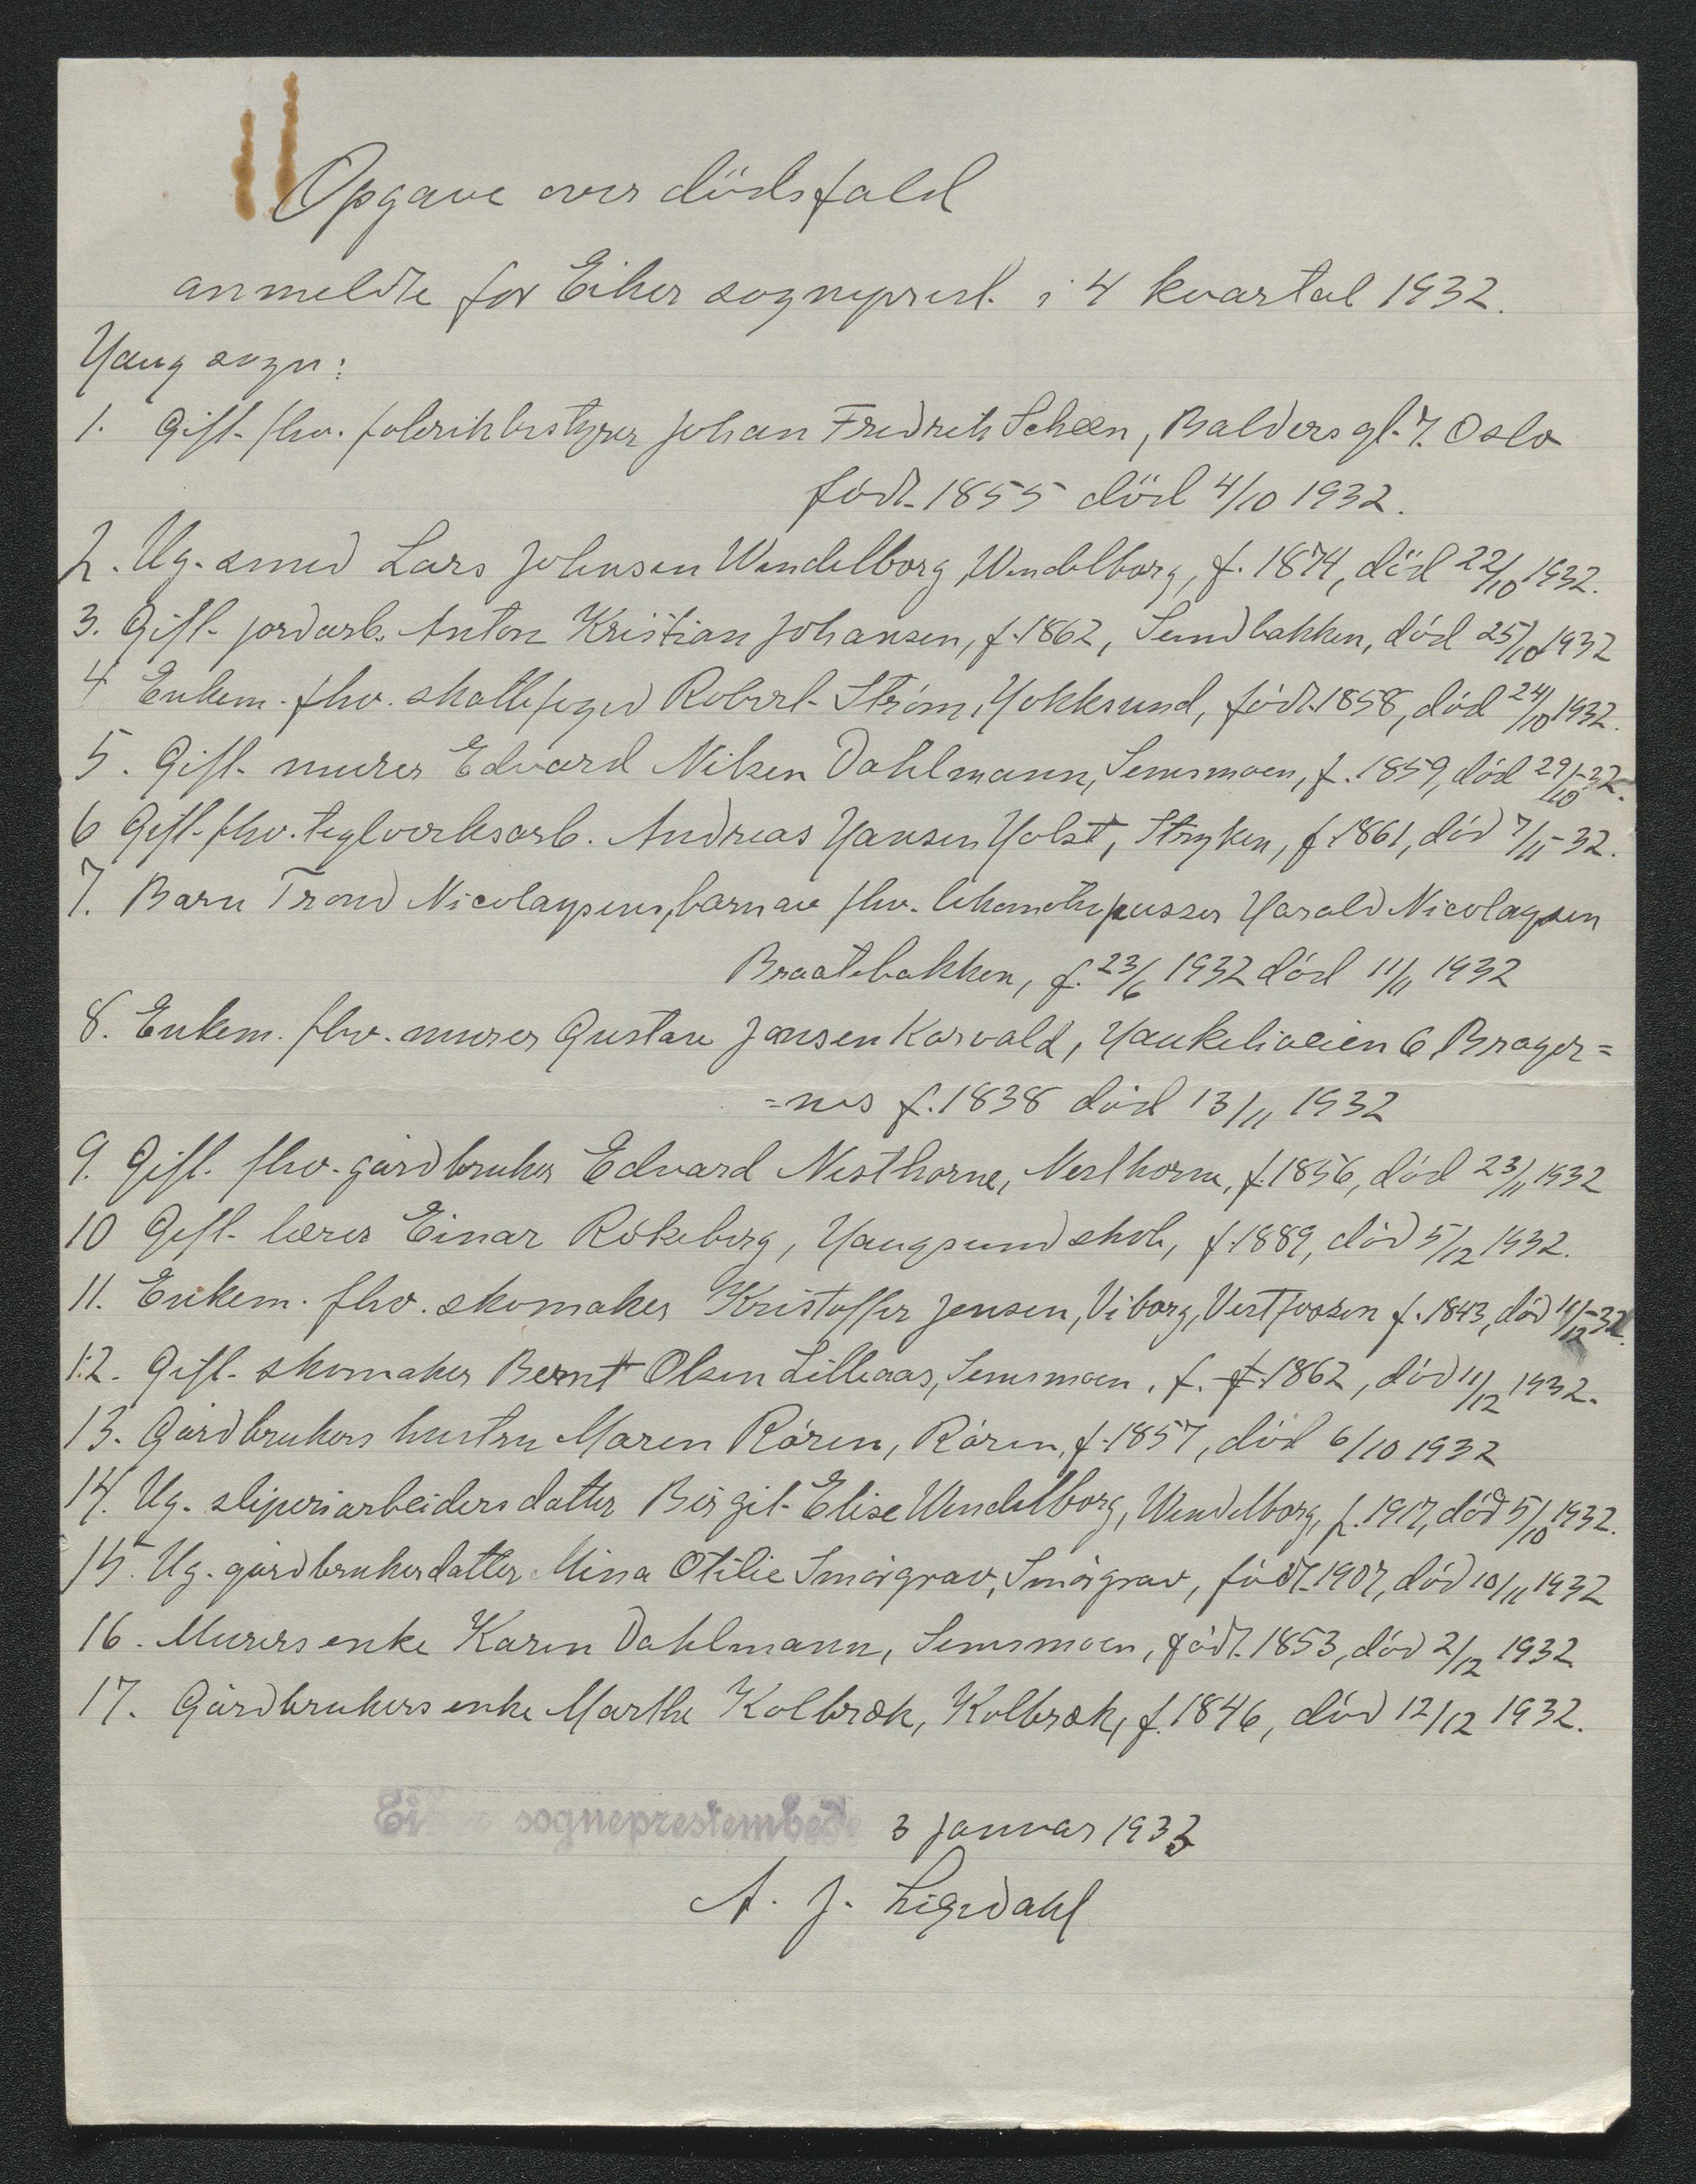 Opgave over dödsfald
anmeldte for Eiker sogneprest. i 4 kvartal 1932.
Haug sogn:
1. Gift fhv. fabrikbestyrer Johan Fredrik Scheen, Baldersgt. 7. Oslo
født 1855 död 4/10 1932.
2. Ug. smed Lars Johnsen Wendelborg, Wendelborg, f. 1874, död 22/10 1932.
3. Gift jordarb. Anton Kristian Johansen, f. 1862, Sundbakken, död 25/10 1932
4 Enkem. fhv. skattefoged Robert Strøm, Hokksund, født 1858, död 24/10 1932.
5. Gift murer Edvard Nilsen Dahlmann, Semsmoen, f. 1859, död 29/10-32.
6 Gift fhv. teglverksarb. Andreas Hansen Holst, Stryken, f. 1861, död 7/11-32.
7. Barn Trond Nicolaysen, barn av fhv. lokomotivpusser Harald Nicolaysen
Braatebakken, f. 23/6 1932 död 11/11 1932
8. Enkem. fhv. murer Gustav Jansen Korvald, Haukeliveien 6 Brager=
=nes f. 1838 död 13/11 1932
9. Gift. fhv. gårdbruker Edvard Nesthorne, Nesthorne, f. 1856, död 23/11 1932
10 Gift lærer Einar Rökeberg, Haugsund skole, f. 1889, död 5/12 1932.
11. Enkem. fhv. skomaker Kristoffer Jensen, Viborg, Vestfossen f. 1843, död 11/12-32.
12. Gift. skomaker Bernt Olsen Lilleaas, Semsmoen, f. f. 1862, död 11/12 1932.
13. Gårdbrukers hustru Maren Rören, Rören, f. 1857, död 6/10 1932
14. Ug. sliperiarbeiders datter Birgit Elise Wendelborg, Wendelborg, f. 1917, död 5/10 1932.
15. Ug. gårdbrukerdatter Mina Otilie Smörgrav, Smörgrav, født 1907, död 10/11 1932
16. Murers enke Karen Dahlmann, Semsmoen, født 1853, död 2/12 1932
17. Gårdbrukers enke Marthe Kolbræk, Kolbræk, f. 1846, död 12/12 1932.
sogneprestembede 3 januar 1933
A. J. Ligrdahl